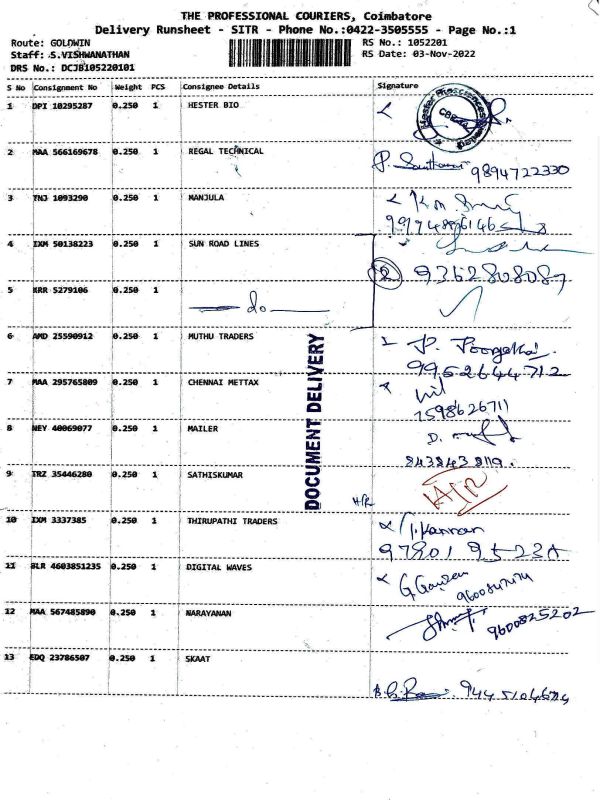 THE PROFESSIONAL COURIERS, Coimbatore
Delivery Runsheet - SITR - Phone No.:0422-3505555 - Page No.:1
Route: GOLDWIN RS No.: 1052201
Staff: S.VISHWANATHAN RS Date: 03-Nov-2022
DRS No.: DCJB105220101
S No Consignment No Weight PCS Consignee Details Signature
1 DPI 10295287 0.250 1 HESTER BIO
2 MAA 566169678 0.250 1 REGAL TECHNICAL
9894722330
3 TNJ 1093290 0.250 1 MANJULA
4 IXM 50138223 0.250 1 SUN ROAD LINES
2 9362808087
5 KRR 5279106 0.250 1
do
6 AMD 25590912 0.250 1 MUTHU TRADERS
9952644712
7 MAA 295765809 0.250 1 CHENNAI METTAX
7598626711
8 NEY 40069077 0.250 1 MAILER
9 TRZ 35446280 0.250 1 SATHISKUMAR
H/R
10 IXM 3337385 0.250 1 THIRUPATHI TRADERS
11 BLR 4603851235 0.250 1 DIGITAL WAVES
12 MAA 567485890 0.250 1 NARAYANAN
9600825202
13 EDQ 23786507 0.250 1 SKAAT
DOCUMENT DELIVERY